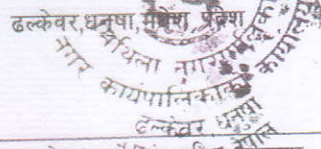 ढल्केवर,धनुषा, मधेश प्रदेश
मिथिला नगरपालिका
नगर कार्यपालिकाको कार्यालय
ढल्केवर, धनुषा
नेपाल